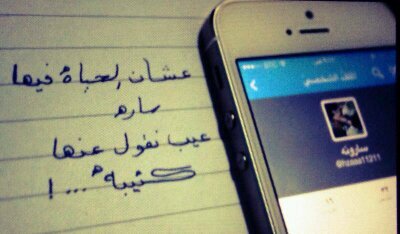 عشان الحياة فيها
ساره
عيب نقول عنها
كئيبه ... !
الملف الشخصي
سارونه
@hzaaa11211